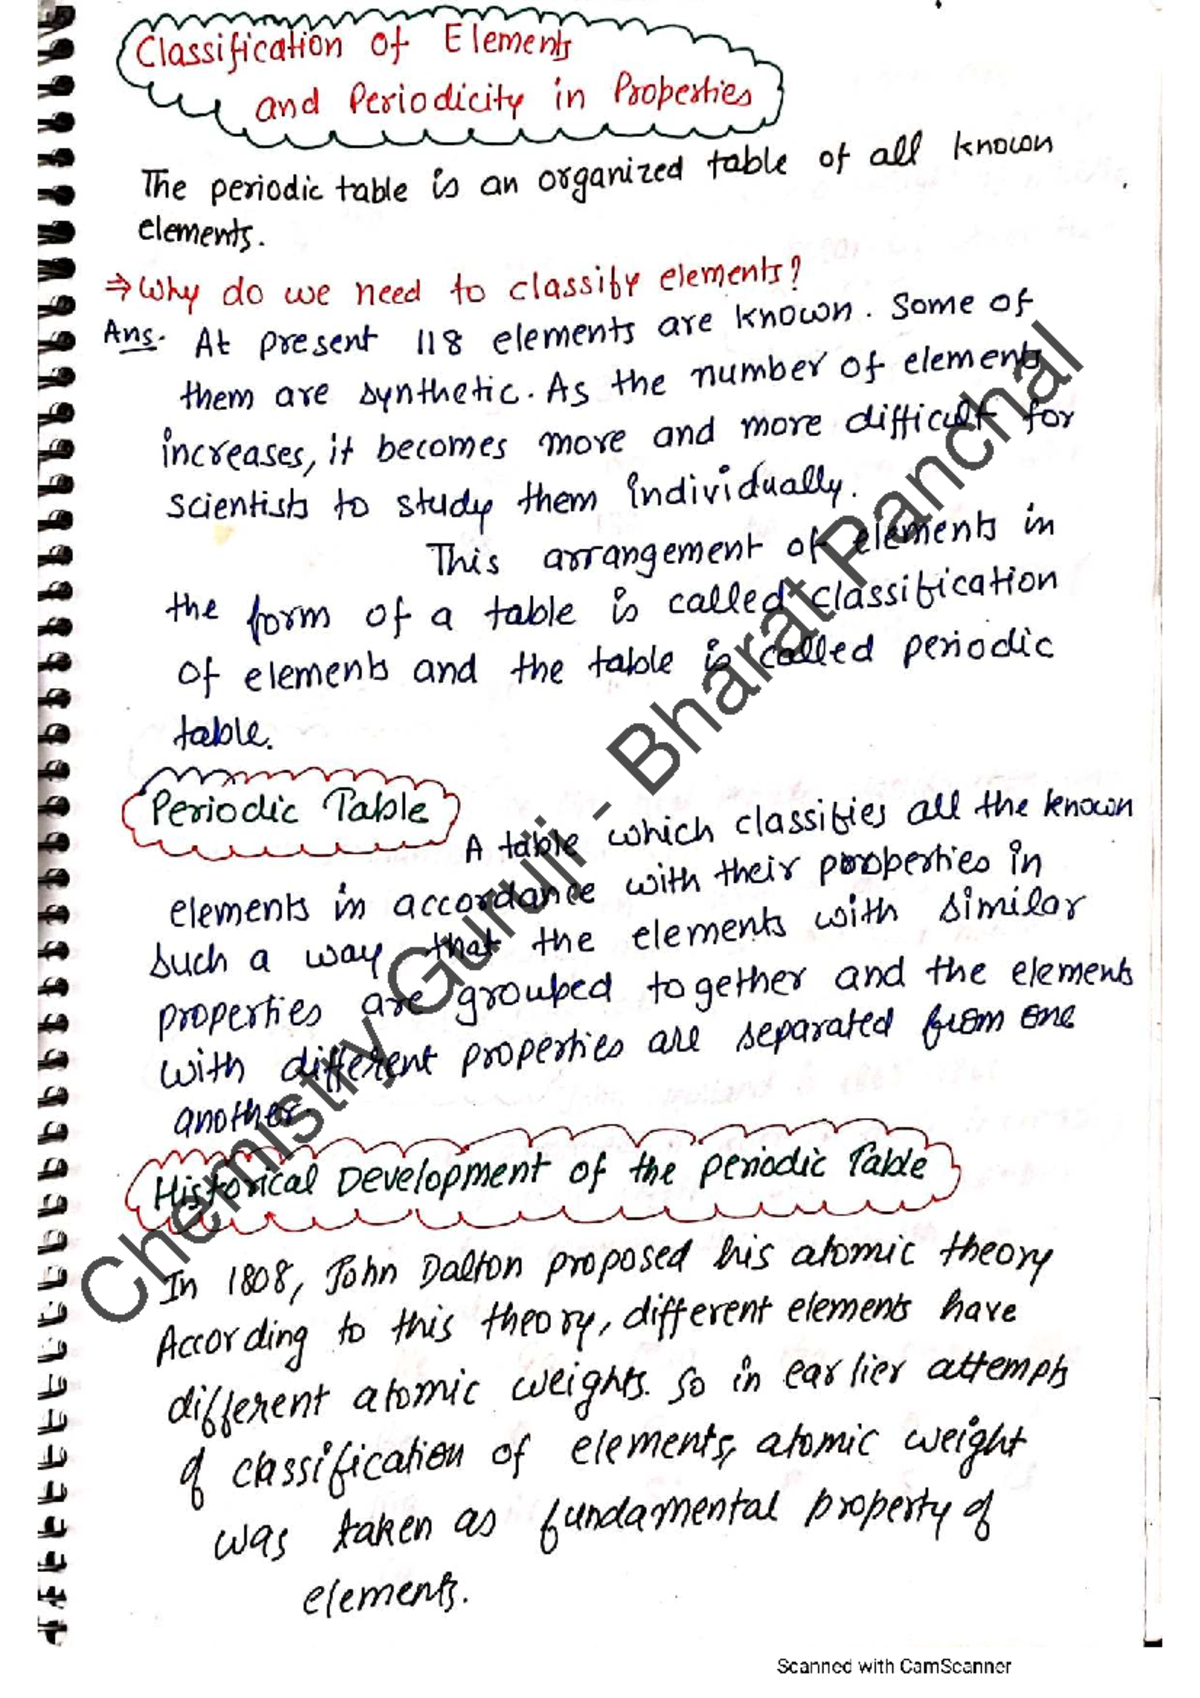 Classification of Elements
and Periodicity in Properties
The periodic table is an organized table of all known
elements.
⇒ Why do we need to classify elements?
Ans. At present 118 elements are known. Some of
them are synthetic. As the number of elements
increases, it becomes more and more difficult for
scientists to study them individually.
This arrangement of elements in
the form of a table is called classification
of elements and the table is called periodic
table.
Periodic Table
A table which classifies all the known
elements in accordance with their properties in
such a way that the elements with similar
properties are grouped together and the elements
with different properties are separated from one
another.
Historical Development of the Periodic Table
In 1808, John Dalton proposed his atomic theory
According to this theory, different elements have
different atomic weights. So in earlier attempts
of classification of elements, atomic weight
was taken as fundamental property of
elements.
Chemistry Guruji - Bharat Panchal
Scanned with CamScanner